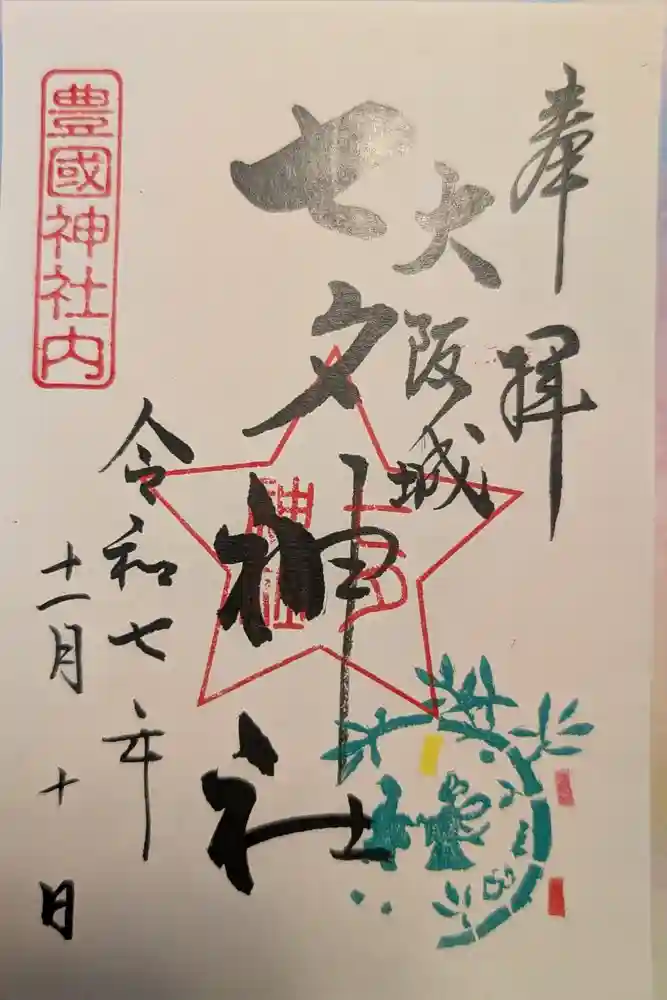 奉拝
大阪城
七夕神社
七夕
神社
令和七年
十一月十日
豊國神社内